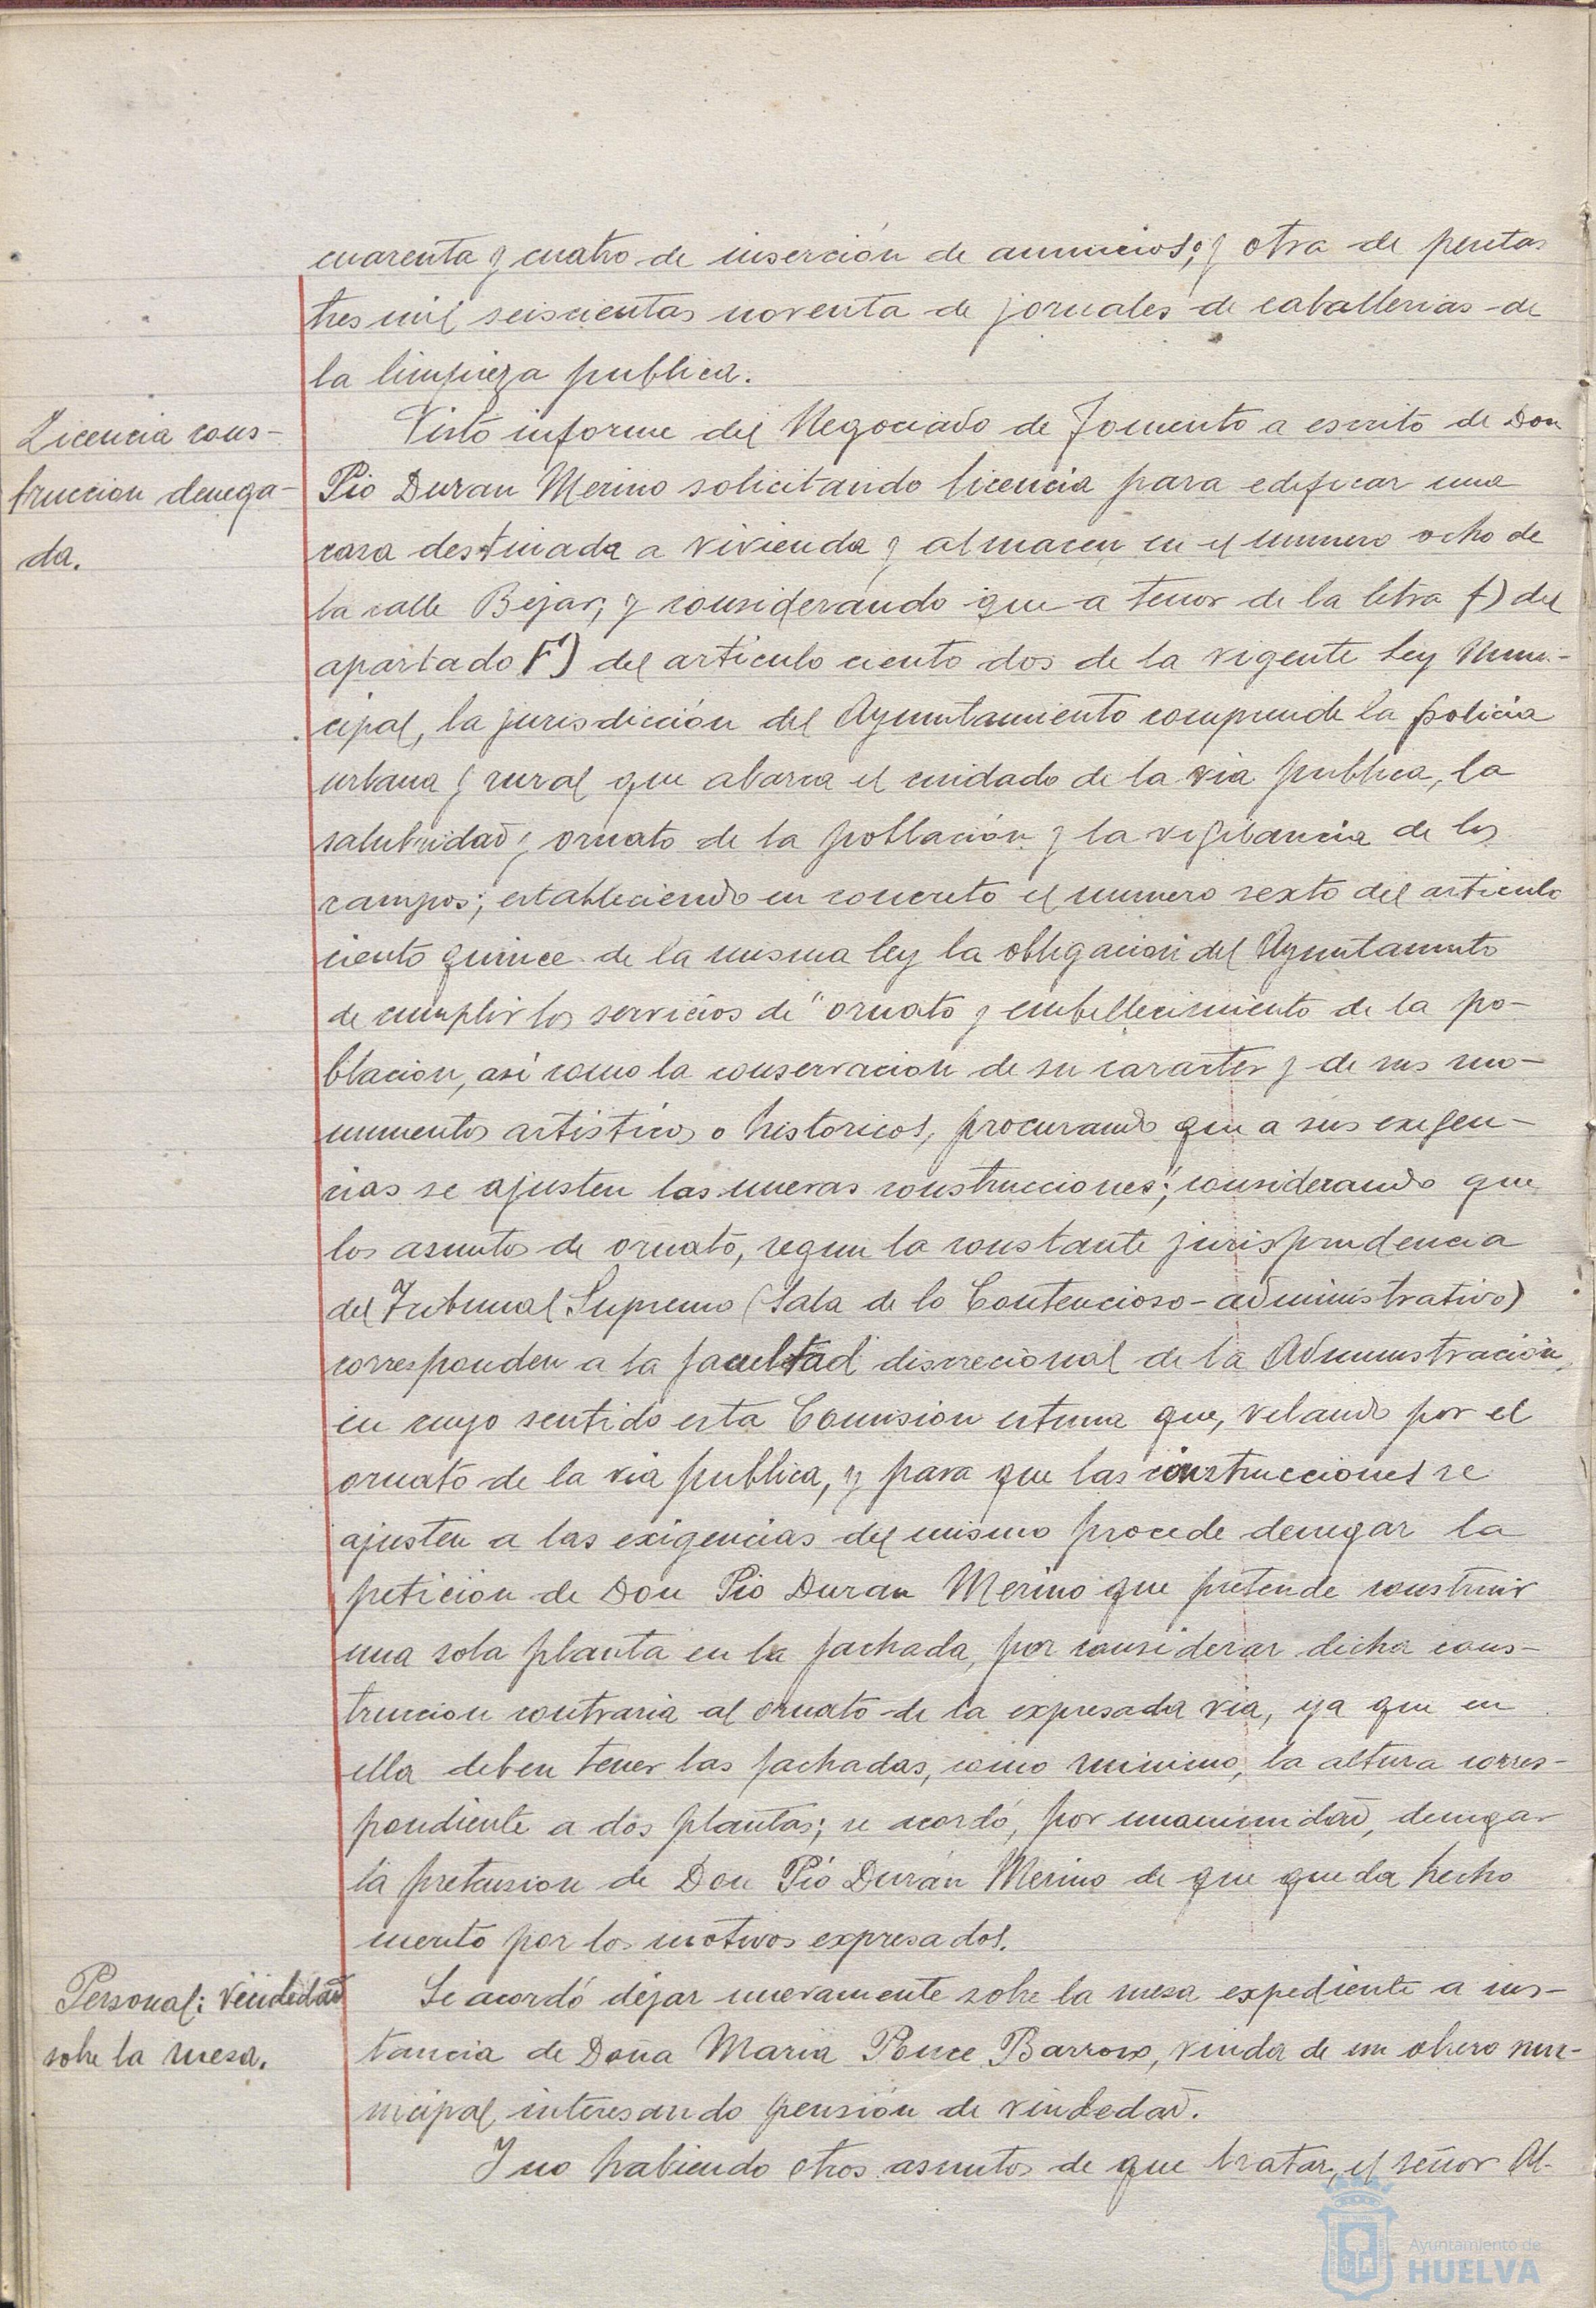 cuarenta y cuatro de inserción de anuncios; y otra de pesetas
tres mil seiscientas noventa de jornales de caballerias de
la limpieza publica.
Licencia cons-
truccion denega-
da.
Visto informe del Negociado de Fomento a escrito de Don
Pio Duran Merino solicitando licencia para edificar una
casa destinada a vivienda y almacen en el numero ocho de
la calle Bejar; y considerando que a tenor de la letra f) del
apartado F) del articulo ciento dos de la vigente Ley Muni-
cipal, la jurisdicción del Ayuntamiento comprende la policia
urbana y rural que abarca el cuidado de la via publica, la
salubridad y ornato de la población y la vigilancia de los
campos; estableciendo en concreto el numero sexto del articulo
ciento quince de la misma ley la obligacion del Ayuntamiento
de cumplir los servicios de "ornato y embellecimiento de la po-
blacion, asi como la conservacion de su caracter y de sus mo-
numentos artisticos o historicos, procurando que a sus exigen-
cias se ajusten las nuevas construcciones"; considerando que
los asuntos de ornato, segun la constante jurisprudencia
del Tribunal Supremo (Sala de lo Contencioso-administrativo)
corresponden a la facultad discrecional de la Administración,
en cuyo sentido esta Comision estima que, velando por el
ornato de la via publica, y para que las construcciones se
ajusten a las exigencias del mismo procede denegar la
peticion de Don Pio Duran Merino que pretende construir
una sola planta en la fachada, por considerar dicha cons-
truccion contraria al ornato de la expresada via, ya que en
ella deben tener las fachadas, como minimo, la altura corres-
pondiente a dos plantas; se acordó, por unanimidad, denegar
la pretension de Don Pió Durán Merino de que queda hecho
merito por los motivos expresados.
Personal: viudedad
sobre la mesa.
Se acordó dejar nuevamente sobre la mesa expediente a ins-
tancia de Doña Maria Ponce Barroso, viuda de un obrero mu-
nicipal, interesando pensión de viudedad.
Y no habiendo otros asuntos de que tratar, el señor Al-
Ayuntamiento de
HUELVA